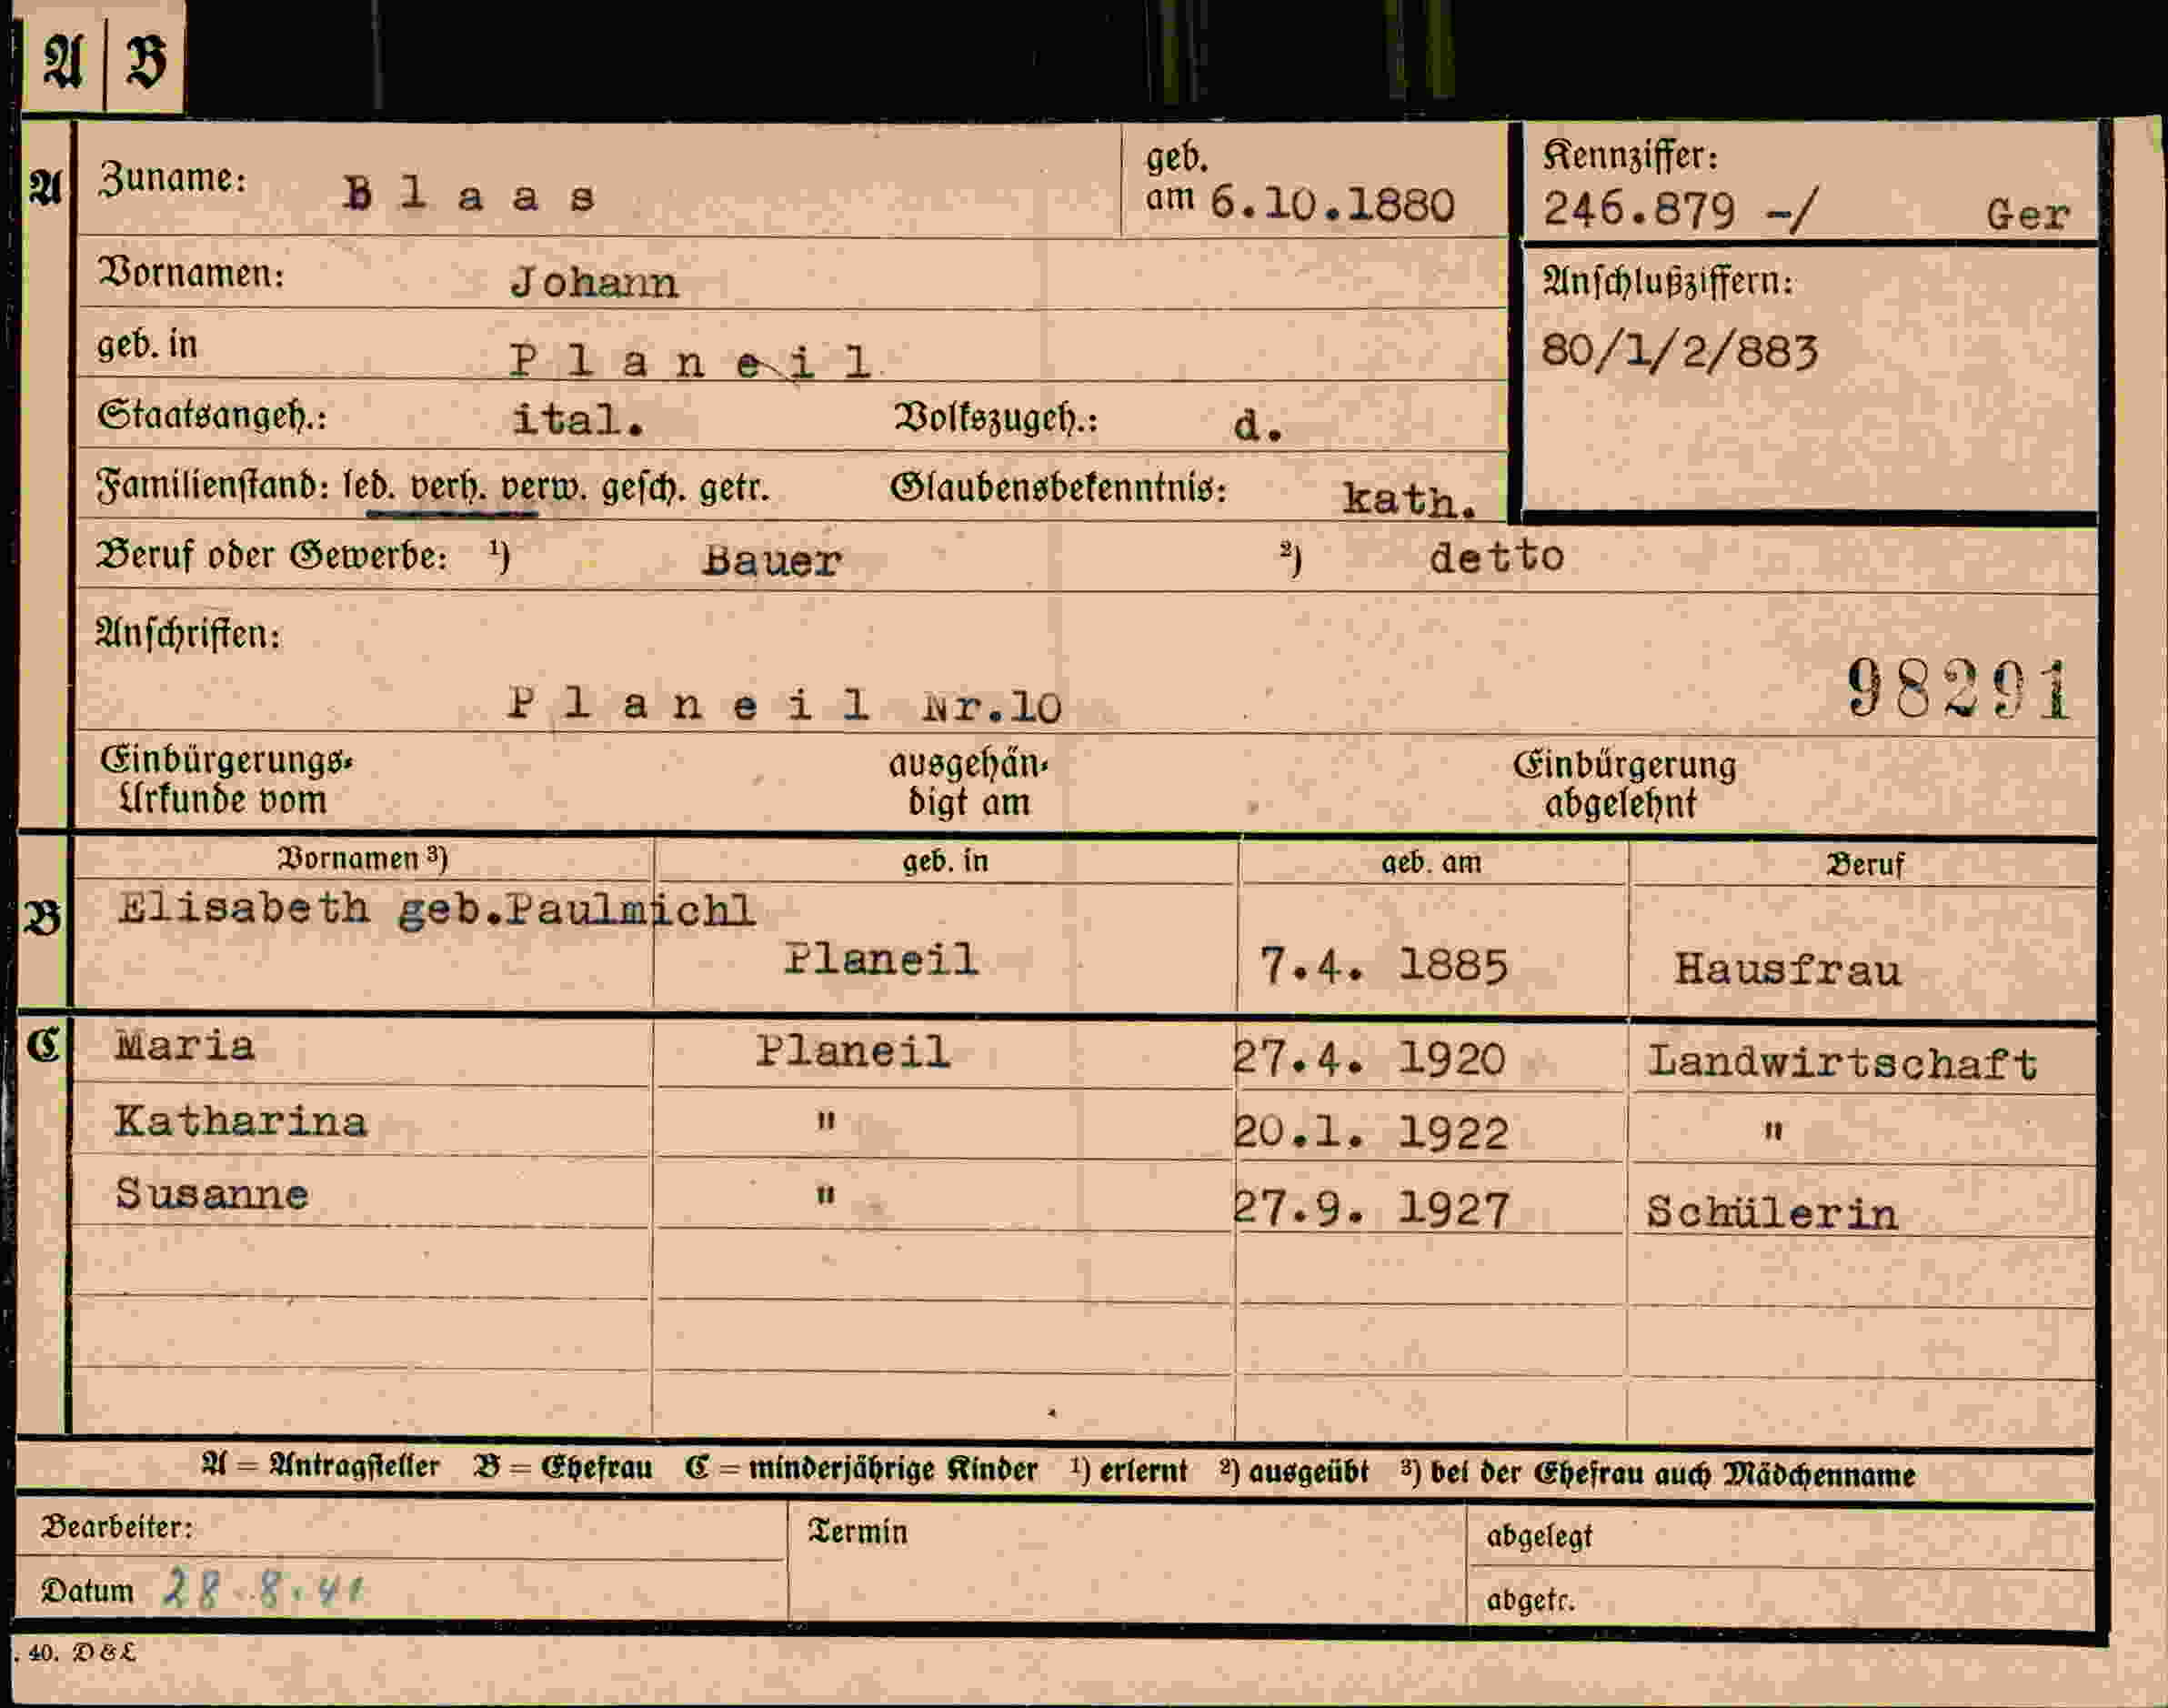 A B
A Zuname: Blaas geb. am 6.10.1880 Kennziffer: 246.879 -/ Ger
Vornamen: Johann Anschlußziffern:
geb. in Planeil 80/1/2/883
Staatsangeh.: ital. Volkszugeh.: d.
Familienstand: led. verh. verw. gesch. getr. Glaubensbekenntnis: kath.
Beruf oder Gewerbe: ¹) Bauer ²) detto
Anschriften:
Planeil Nr.10 98291
Einbürgerungs- ausgehän- Einbürgerung
Urkunde vom digt am abgelehnt
Vornamen ³) geb. in geb. am Beruf
B Elisabeth geb.Paulmichl
Planeil 7.4. 1885 Hausfrau
C Maria Planeil 27.4. 1920 Landwirtschaft
Katharina " 20.1. 1922 "
Susanne " 27.9. 1927 Schülerin
A = Antragsteller B = Ehefrau C = minderjährige Kinder ¹) erlernt ²) ausgeübt ³) bei der Ehefrau auch Mädchenname
Bearbeiter: Termin abgelegt
Datum 28.8.41 abgetr.
. 40. D & L